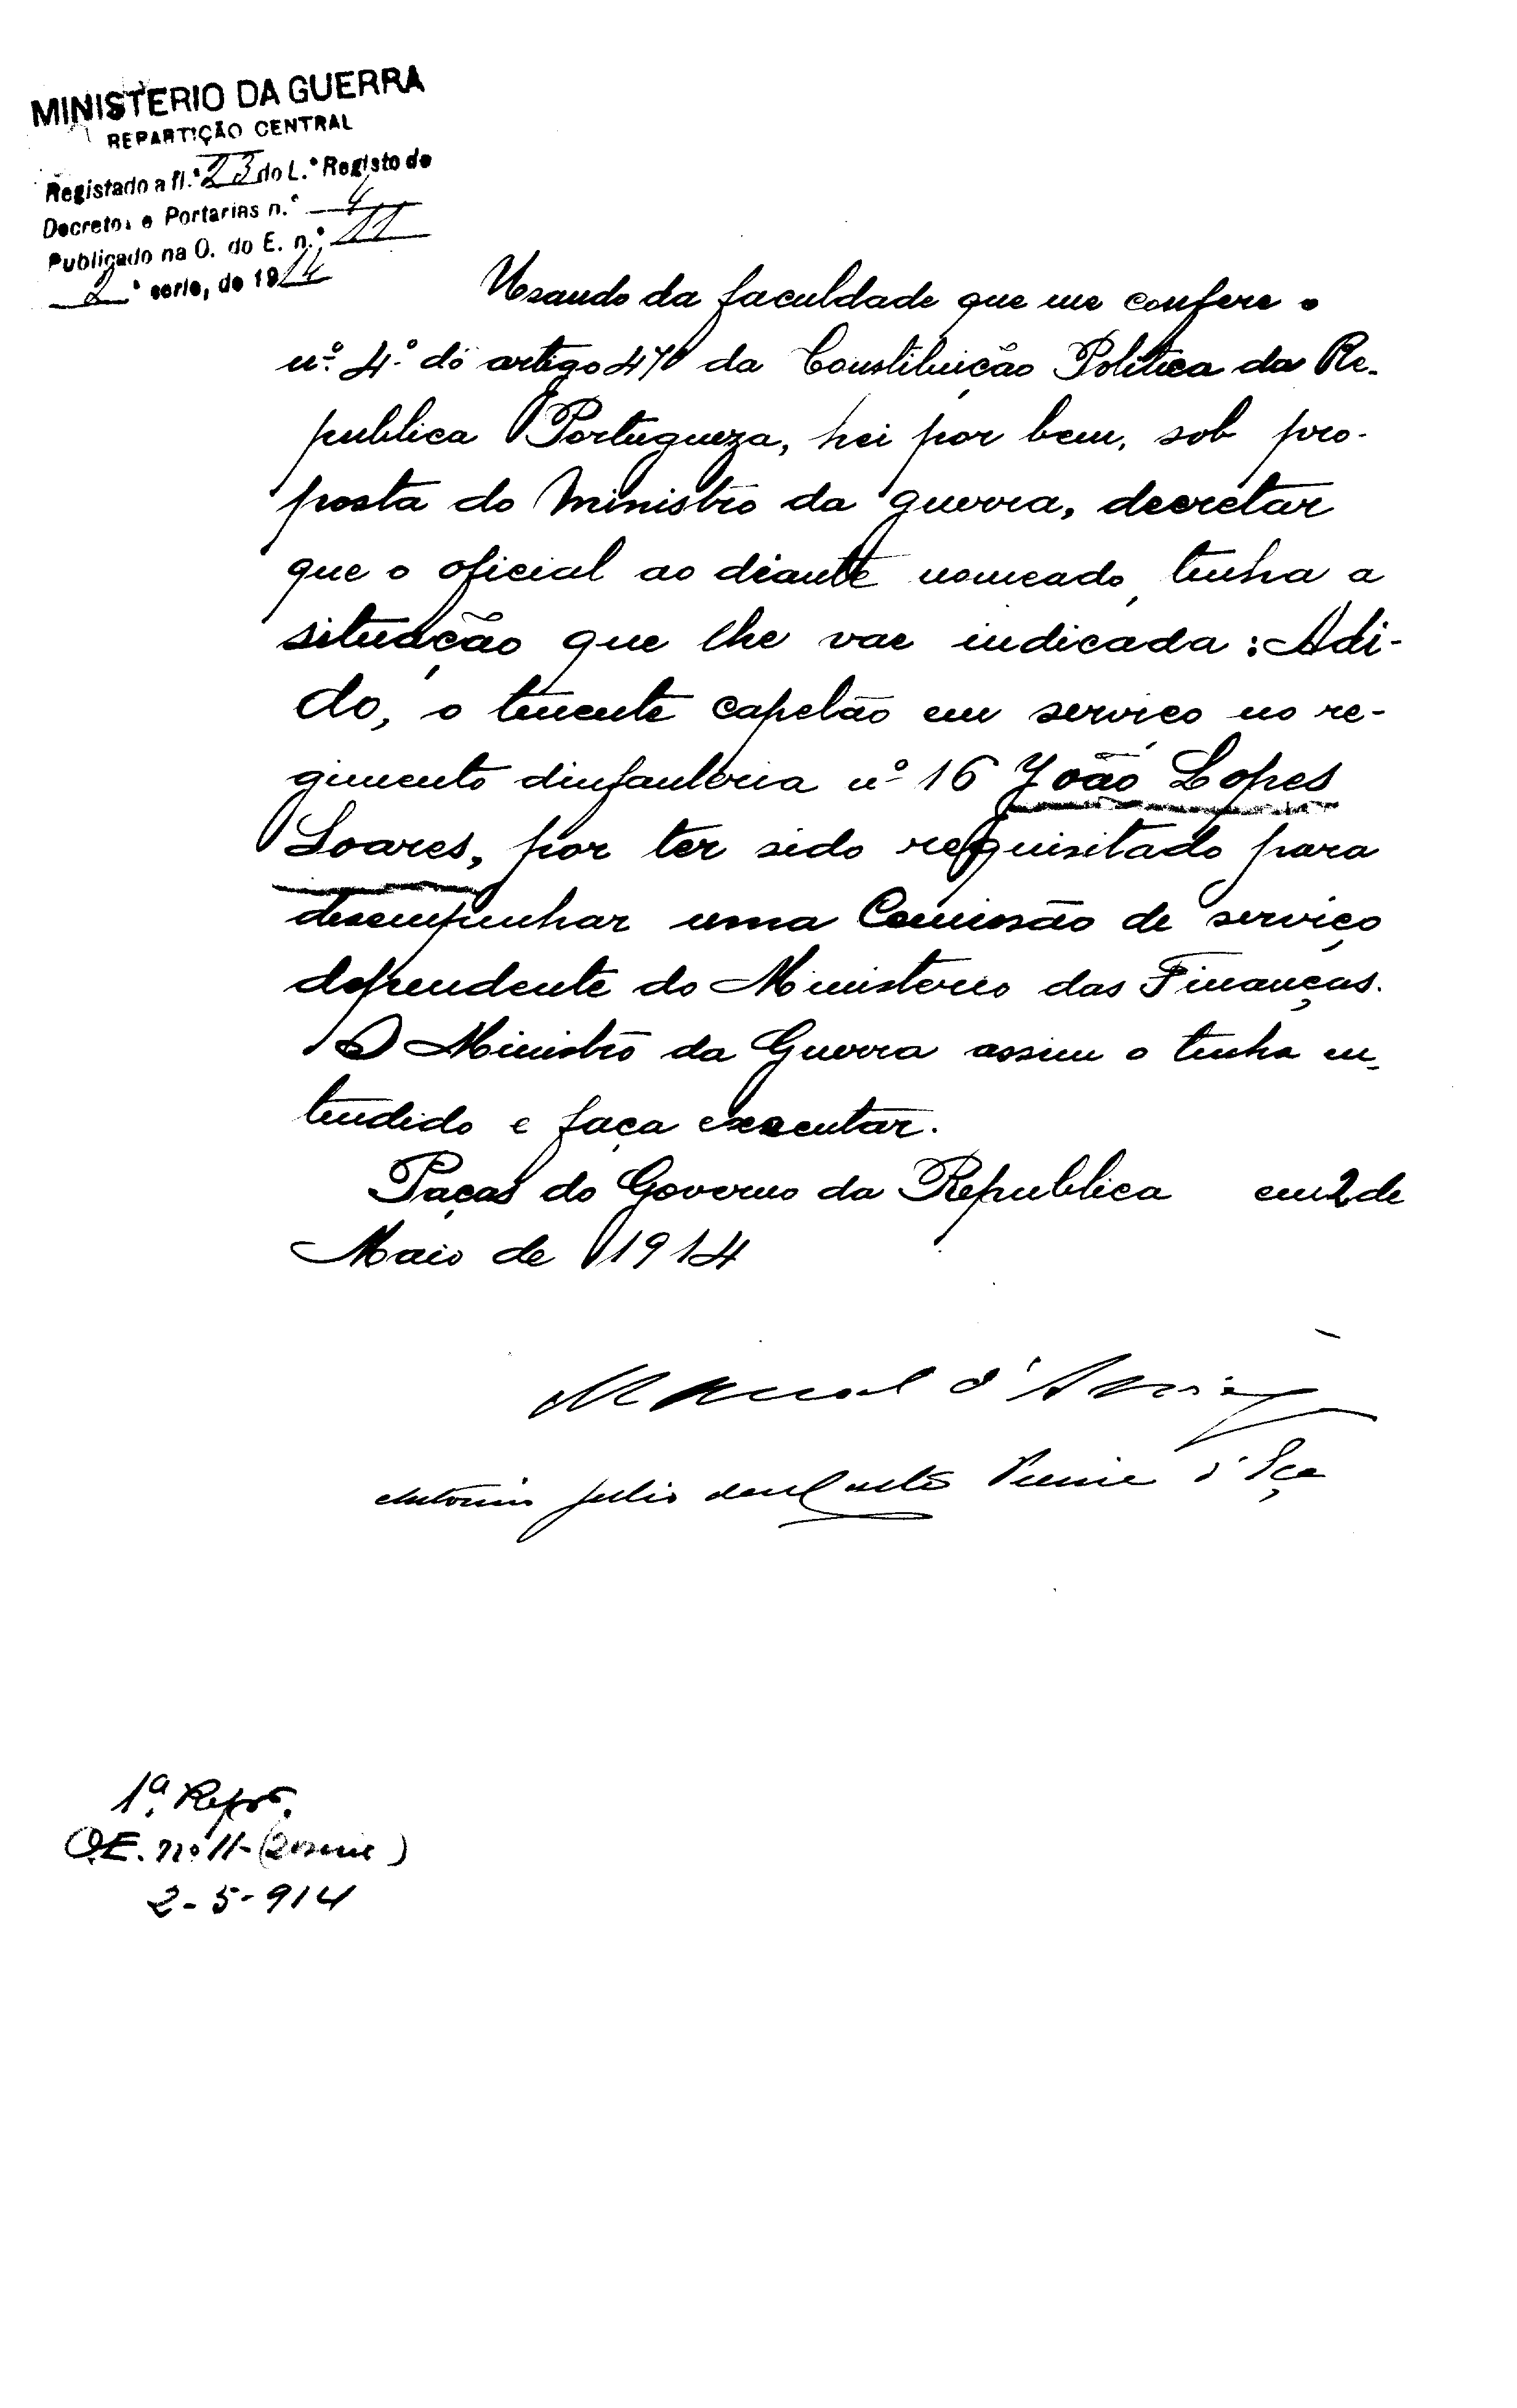 MINISTERIO DA GUERRA
REPARTIÇÃO CENTRAL
Registado a fl.ª 23 do L.º Registo de
Decretos e Portarias n.º 4
Publicado na O. do E. n.º 11
2ª serie, de 1914
Usando da faculdade que me confere o
nº 4º do artigo 47º da Constituição Politica da Re-
publica Portugueza, hei por bem, sob pro-
posta do Ministro da guerra, decretar
que o oficial ao diante nomeado, tenha a
situação que lhe vae indicada: Adi-
do, o tenente capelão em serviço no re-
gimento dinfanteria nº 16 João Lopes
Soares, por ter sido requisitado para
desempenhar uma Comissão de serviço
dependente do Ministerio das Finanças.
O Ministro da Guerra assim o tenha en-
tendido e faça executar.
Paços do Governo da Republica em 2 de
Maio de 1914
Manoel d'Arriaga
Antonio Julio da Costa Pereira d'Eça
1ª Repº.
O.E. nº 11 - (2ª serie)
2-5-914